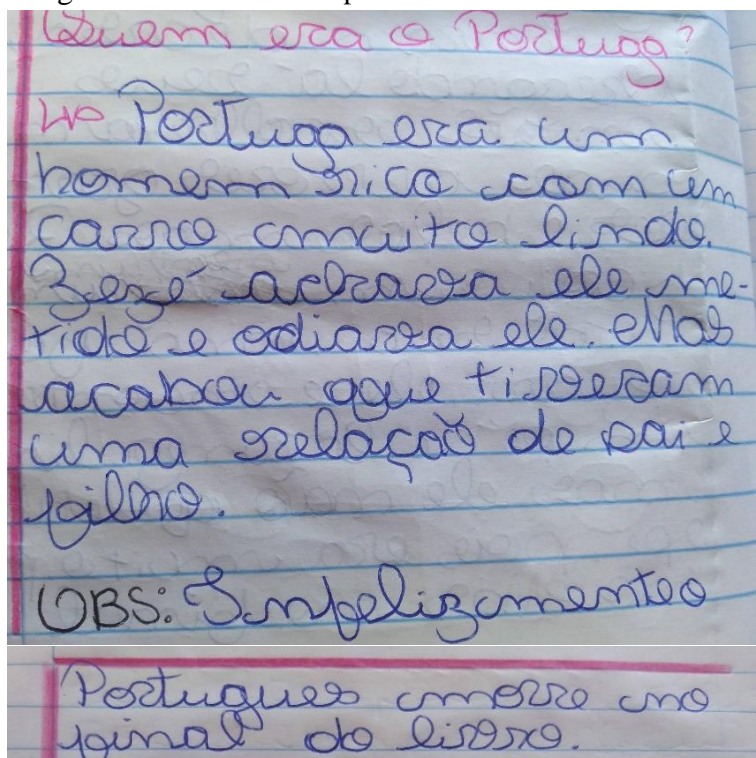 Quem era o Portuga?
↳ Portuga era um
homem rico com um
carro muito lindo.
Zezé achava ele me-
tido e odiava ele. Mas
acabou que tiveram
uma relação de pai e
filho.
OBS: Infelizmente o
Portugues morre no
final do livro.